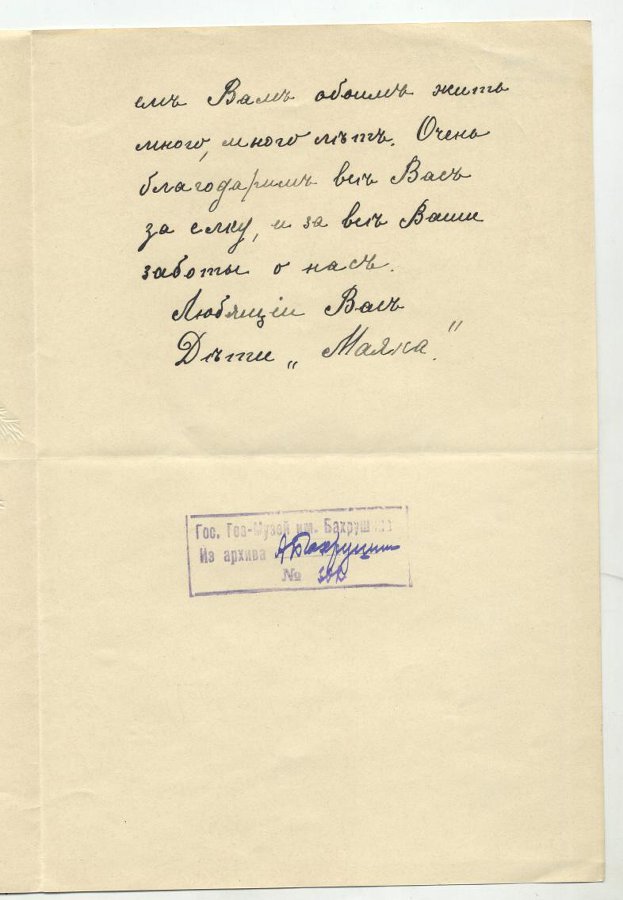 емъ Вамъ обоимъ жить
много, много лѣтъ. Очень
благодаримъ всѣ Васъ
за елку, и за всѣ Ваши
заботы о насъ.
Любящіи Васъ
Дѣти „Маяка".
Гос. Теа-Музей им. Бахрушина
Из архива А Бахрушин
№